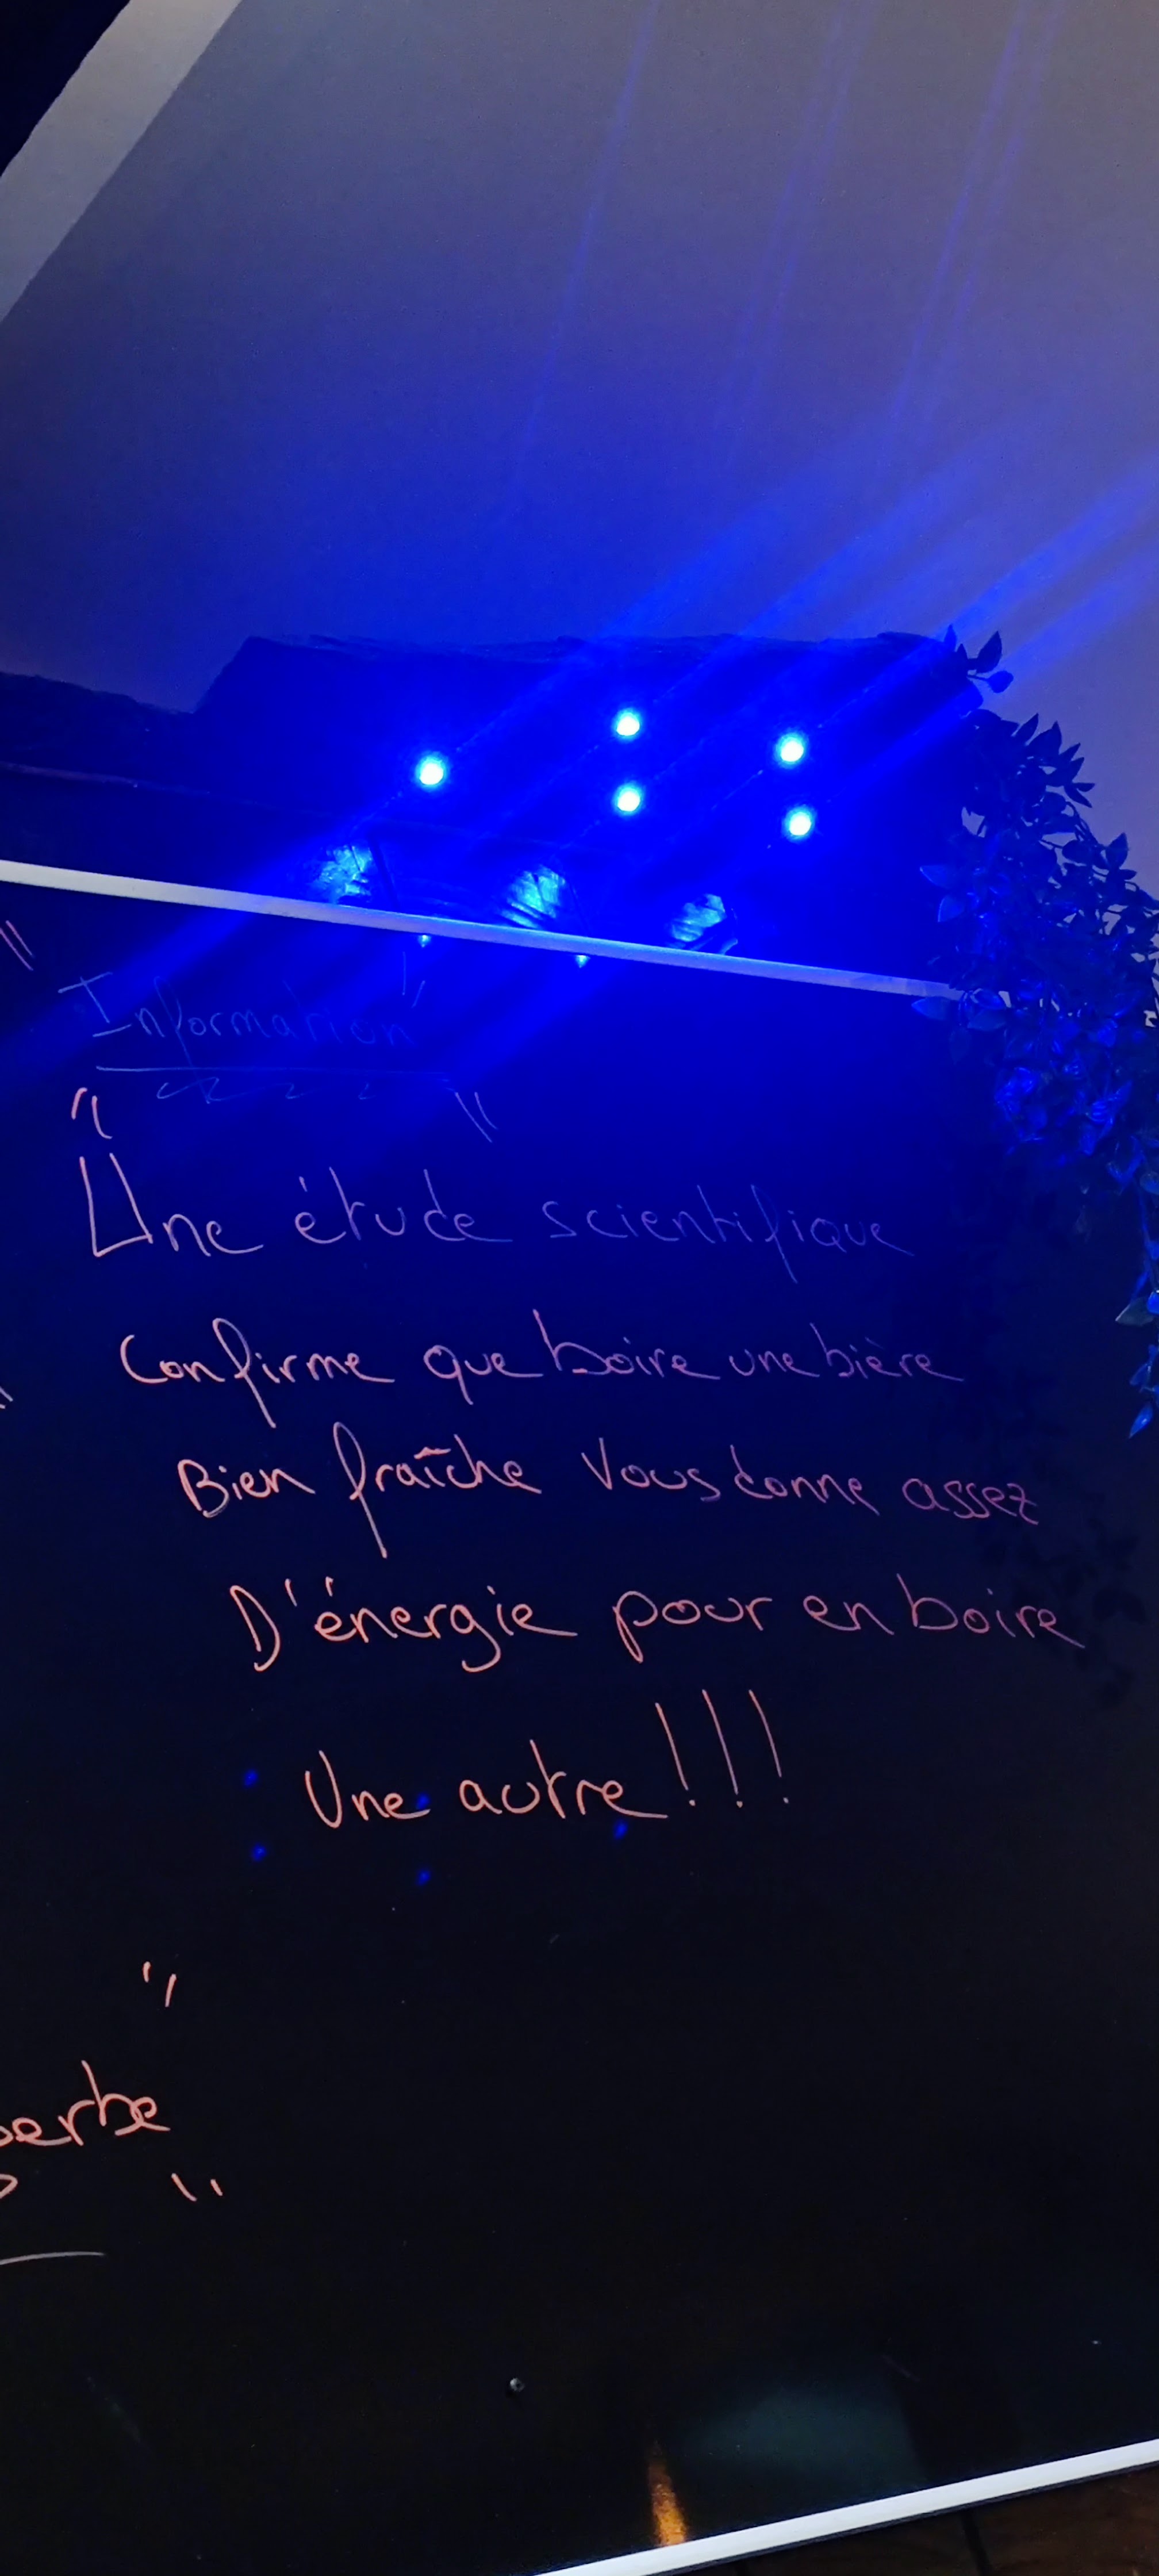 " Information "
" Une étude scientifique "
Confirme que boire une bière
Bien fraîche Vous donne assez
D'énergie pour en boire
Une autre !!!
erbe "